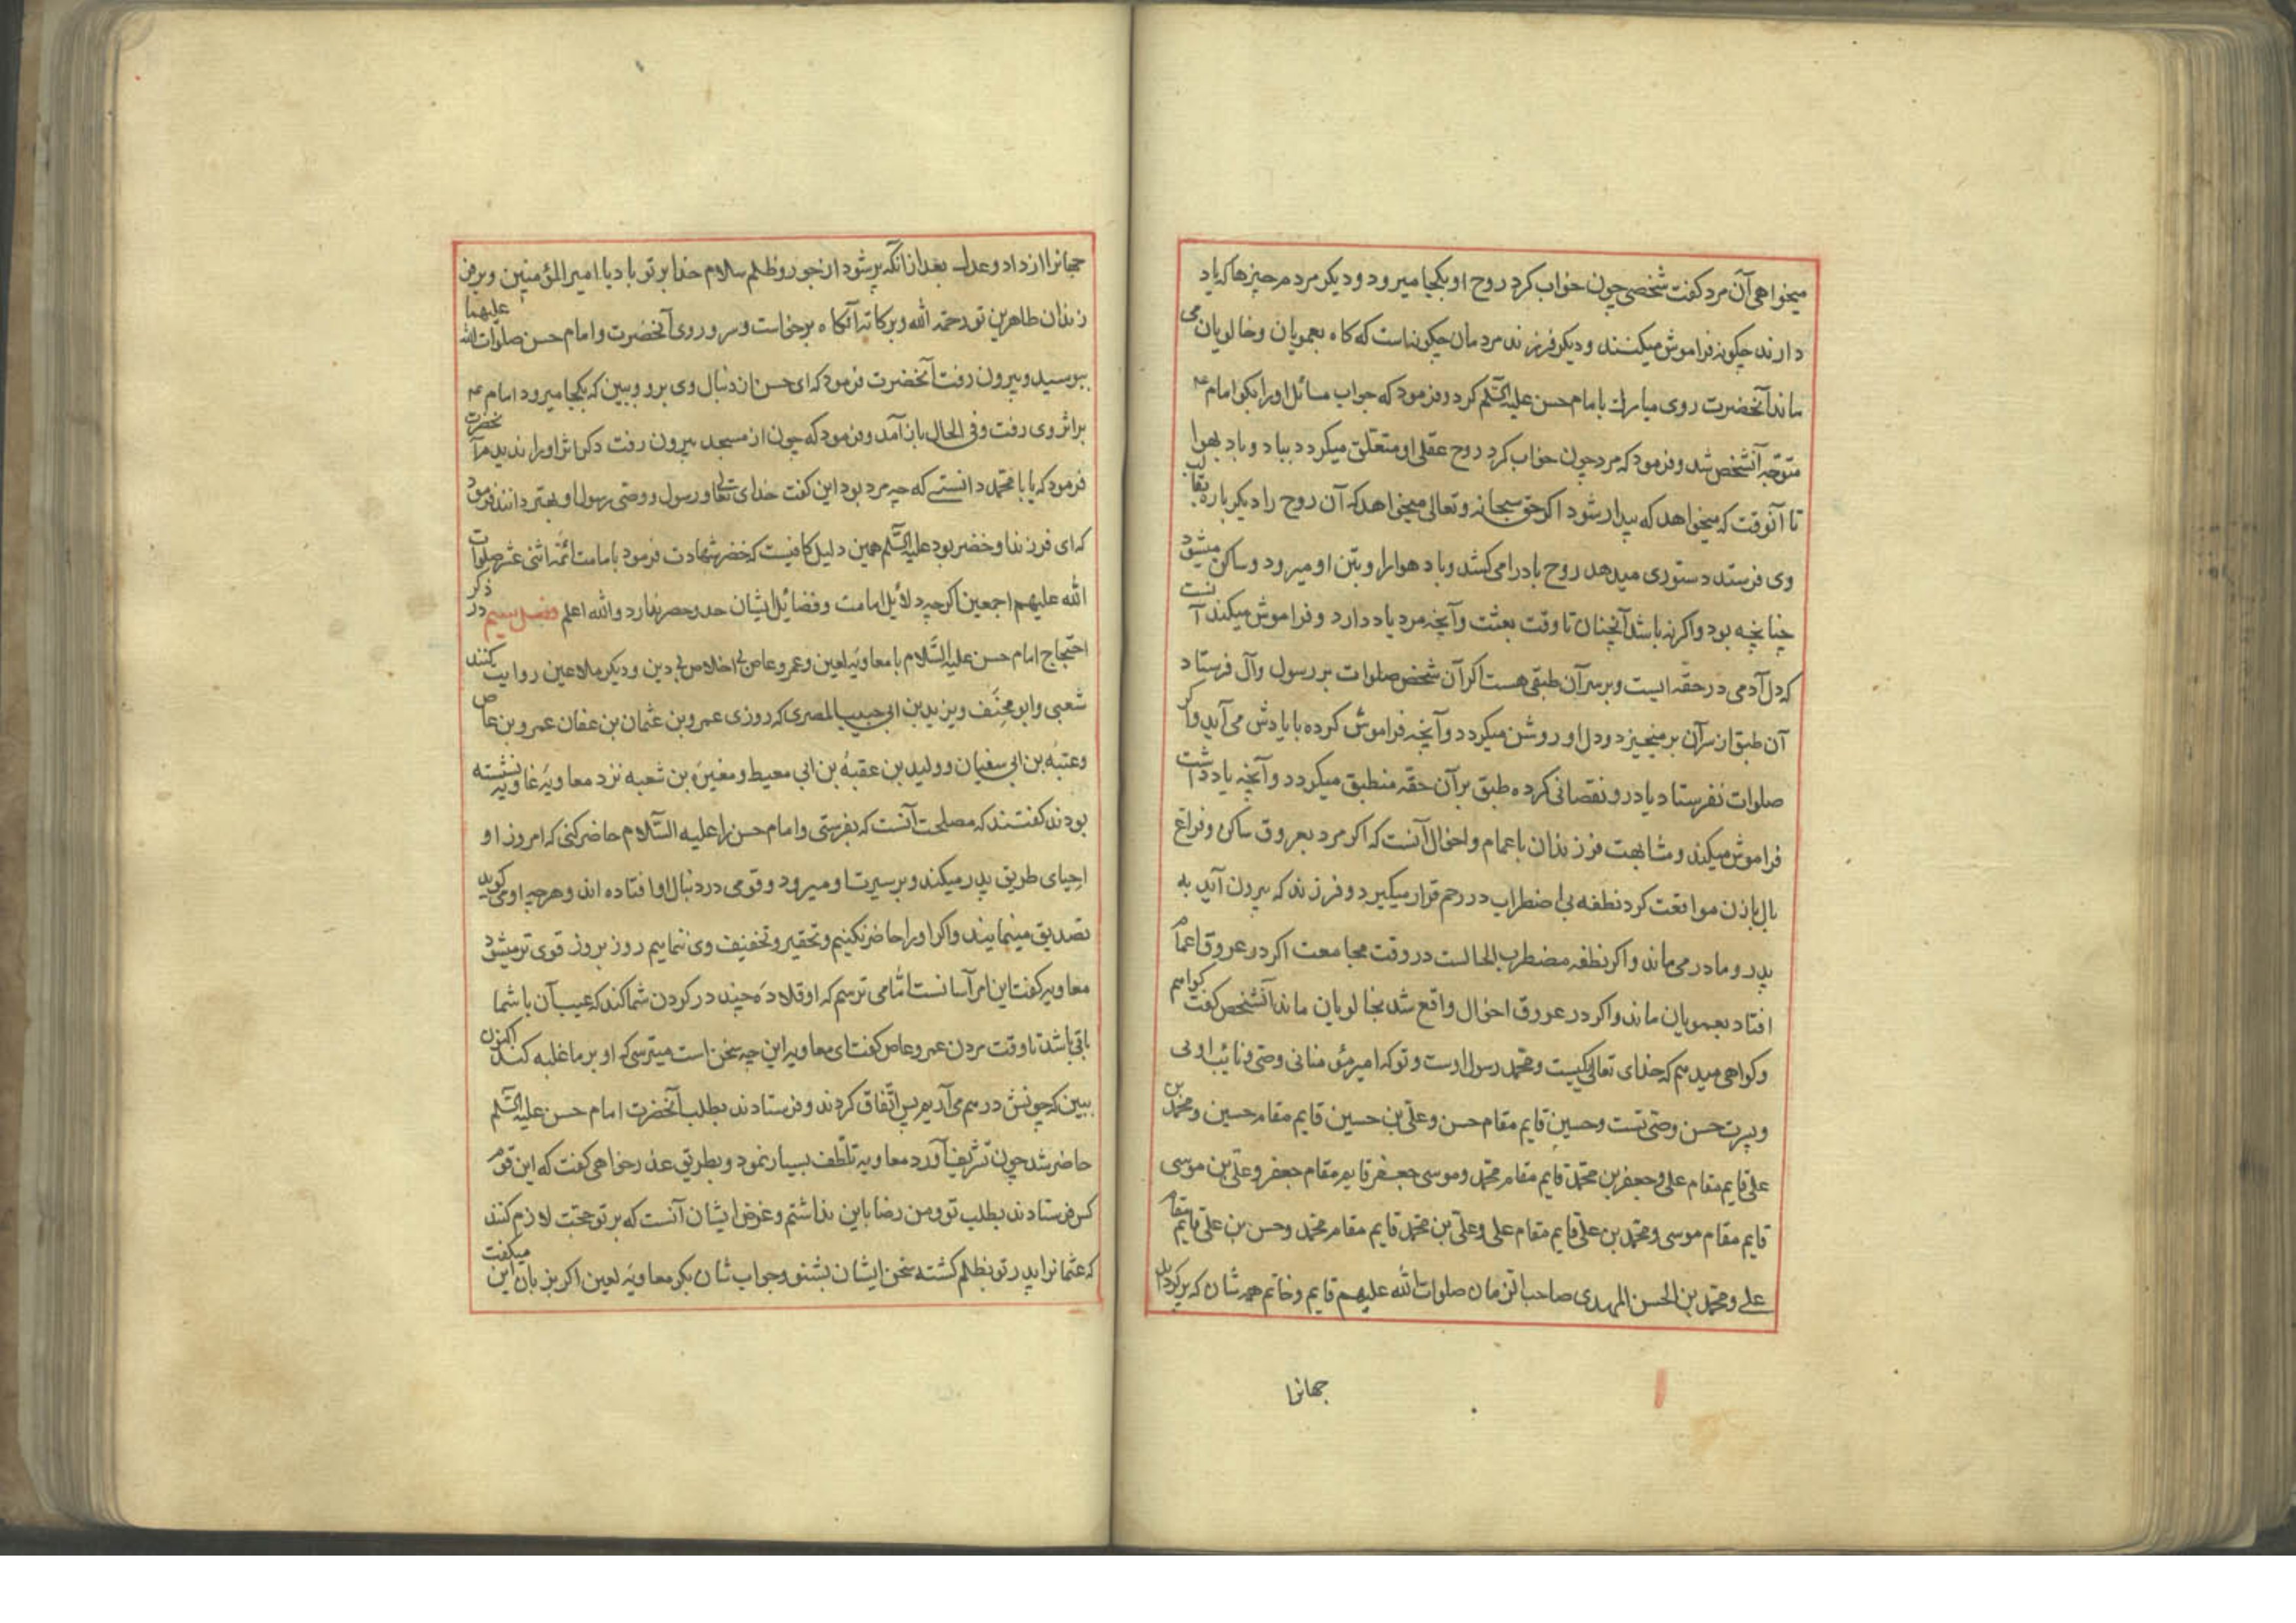 میخواهی آن مرد گفت شخصی چون خواب کرد روح او بکجا میرود و دیگر مردم چیزها که یاد
دارند چگونه فراموش میکنند و دیگر فرزند مردمان چگونه است که گاه بعمویان و خالویان می
ماند آنحضرت روی مبارک بامام حسن علیه السّلم کرد و فرمود که جواب مسائل او را بگو امام ع
متوجّه آنشخص شد و فرمود که مرد چون خواب کرد روح عقلی او متعلّق میگردد بباد و باد بهوا
تا آنوقت که میخواهد که بیدار شود اگر حق سبحانه و تعالی میخواهد که آن روح را دیگر باره بقالب
وی فرستد دستوری میدهد روح باد را می کشد و باد هوا را و بتن او میرود و ساکن میشود
چنانچه بود و اگر نه باشد آنچنان تا وقت بعثت و آنچه مرد یاد دارد و فراموش میکند آنست
که دل آدمی در حقّه ایست و بر سر آن طبقی هست اگر آن شخص صلوات بر رسول و آل فرستاد
آن طبق از سر آن بر میخیزد و دل او روشن میگردد و آنچه فراموش کرده با یادش می آید و اگر
صلوات نفرستاد یا در و نقصانی کرده طبق بر آن حقّه منطبق میگردد و آنچه یاد داشت
فراموش میکند و مشابهت فرزندان باعمام و اخوال آنست که اگر مرد بعروق ساکن و فراغ
بال با زن مواقعت کرد نطفه بی اضطراب در رحم قرار میگیرد و فرزند که بیرون آید به
پدر و مادر می ماند و اگر نطفه مضطرب الحالست در وقت مجامعت اگر در عروق اعمام
افتاد بعمویان ماند و اگر در عروق اخوال واقع شد بخالویان ماند آنشخص گفت گواهم
و گواهی میدهم که خدای تعالی یکیست و محمّد رسول اوست و تو که امیر مؤمنانی وصّی و نائب اوئی
و پسرت حسن وصّی تست و حسین قایم مقام حسن و علّی بن حسین قایم مقام حسین و محمّد بن
علی قایم مقام علی و جعفر بن محمّد قایم مقام محمّد و موسی جعفر قایم مقام جعفر و علّی بن موسی
قایم مقام موسی و محمّد بن علّی قایم مقام علی و علّی بن محمّد قایم مقام محمّد و حسن بن علّی قایم مقام
علی و محمّد بن الحسن المهدی صاحب الزمان صلوات الله علیهم قایم و خاتم همه شان که پر گرداند
جهانرا
جهانرا از داد و عدل بعد از انکه پر شود از جور و ظلم سلام خدا بر تو باد یا امیر المؤمنین و بر فر
زندان طاهرین تو و رحمة الله و برکاته آنکاه برخاست و سر و روی آنحضرت و امام حسن صلوات الله علیهما
ببوسید و بیرون رفت آنحضرت فرمود که ای حسن از دنبال وی برو و ببین که بکجا میرود امام ع
بر اثر وی رفت و فی الحال باز آمد و فرمود که چون از مسجد بیرون رفت دکر اثر او را ندیدم آنحضرت
فرمود که یا با محمّد دانستی که چه مرد بود این گفت خدای تعالی و رسول و وصّی رسول او بهتر دانند فرمود
که ای فرزند او خضر بود علیه السّلم همین دلیل کافیست که خضر شهادت فرمود بامامت ائمّه اثنی عشر صلوات
الله علیهم اجمعین اکرچه دلائل امامت و فضائل ایشان حد و حصر ندارد و الله اعلم فصل سیم در ذکر
احتجاج امام حسن علیه السّلام با معاویه لعین و عمرو عاص بی اخلاص بی دین و دیکر ملاعین روایت کنند
شعبی و ابو مخنف و یزید بن ابی حبیب المصری که روزی عمرو بن عثمان بن عفان عمرو بن عاص
و عتبه بن ابی سفیان و ولید بن عقبه بن ابی معیط و مغیره بن شعبه نزد معاویه غاویه نشسته
بودند کفتند که مصلحت آنست که بفرستی و امام حسن را علیه السّلام حاضر کنی که امروز او
احیای طریق پدر میکند و بر سیرت او میرود و قومی در دنبال او افتاده اند و هر چه او می گوید
تصدیق مینمایند و اکر او را حاضر نکنیم و تحقیر و تخفیف وی ننمایم روز بروز قوی تر میشود
معاویه کفت این امر آسانست امّا می ترسم که او قلاده چند در کردن شما کند که عیب آن با شما
باقی باشد تا وقت مردن عمرو عاص کفت ای معاویه این چه سخن است میترسی که او بر ما غلبه کند اکنون
ببین که چونش در هم می آریم پس اتّفاق کردند و فرستادند بطلب آنحضرت امام حسن علیه السّلم
حاضر شد چون تشریف آورد معاویه تلطّف بسیار نمود و بطریق عذر خواهی کفت که این قوم
کس فرستادند بطلب تو و من رضا باین نداشتم و غرض ایشان آنست که بر تو حجّت لازم کنند
که عثمانرا پدر تو بظلم کشته سخن ایشان بشنو و جواب شان بکو معاویه لعین اکر بزبان این میکفت